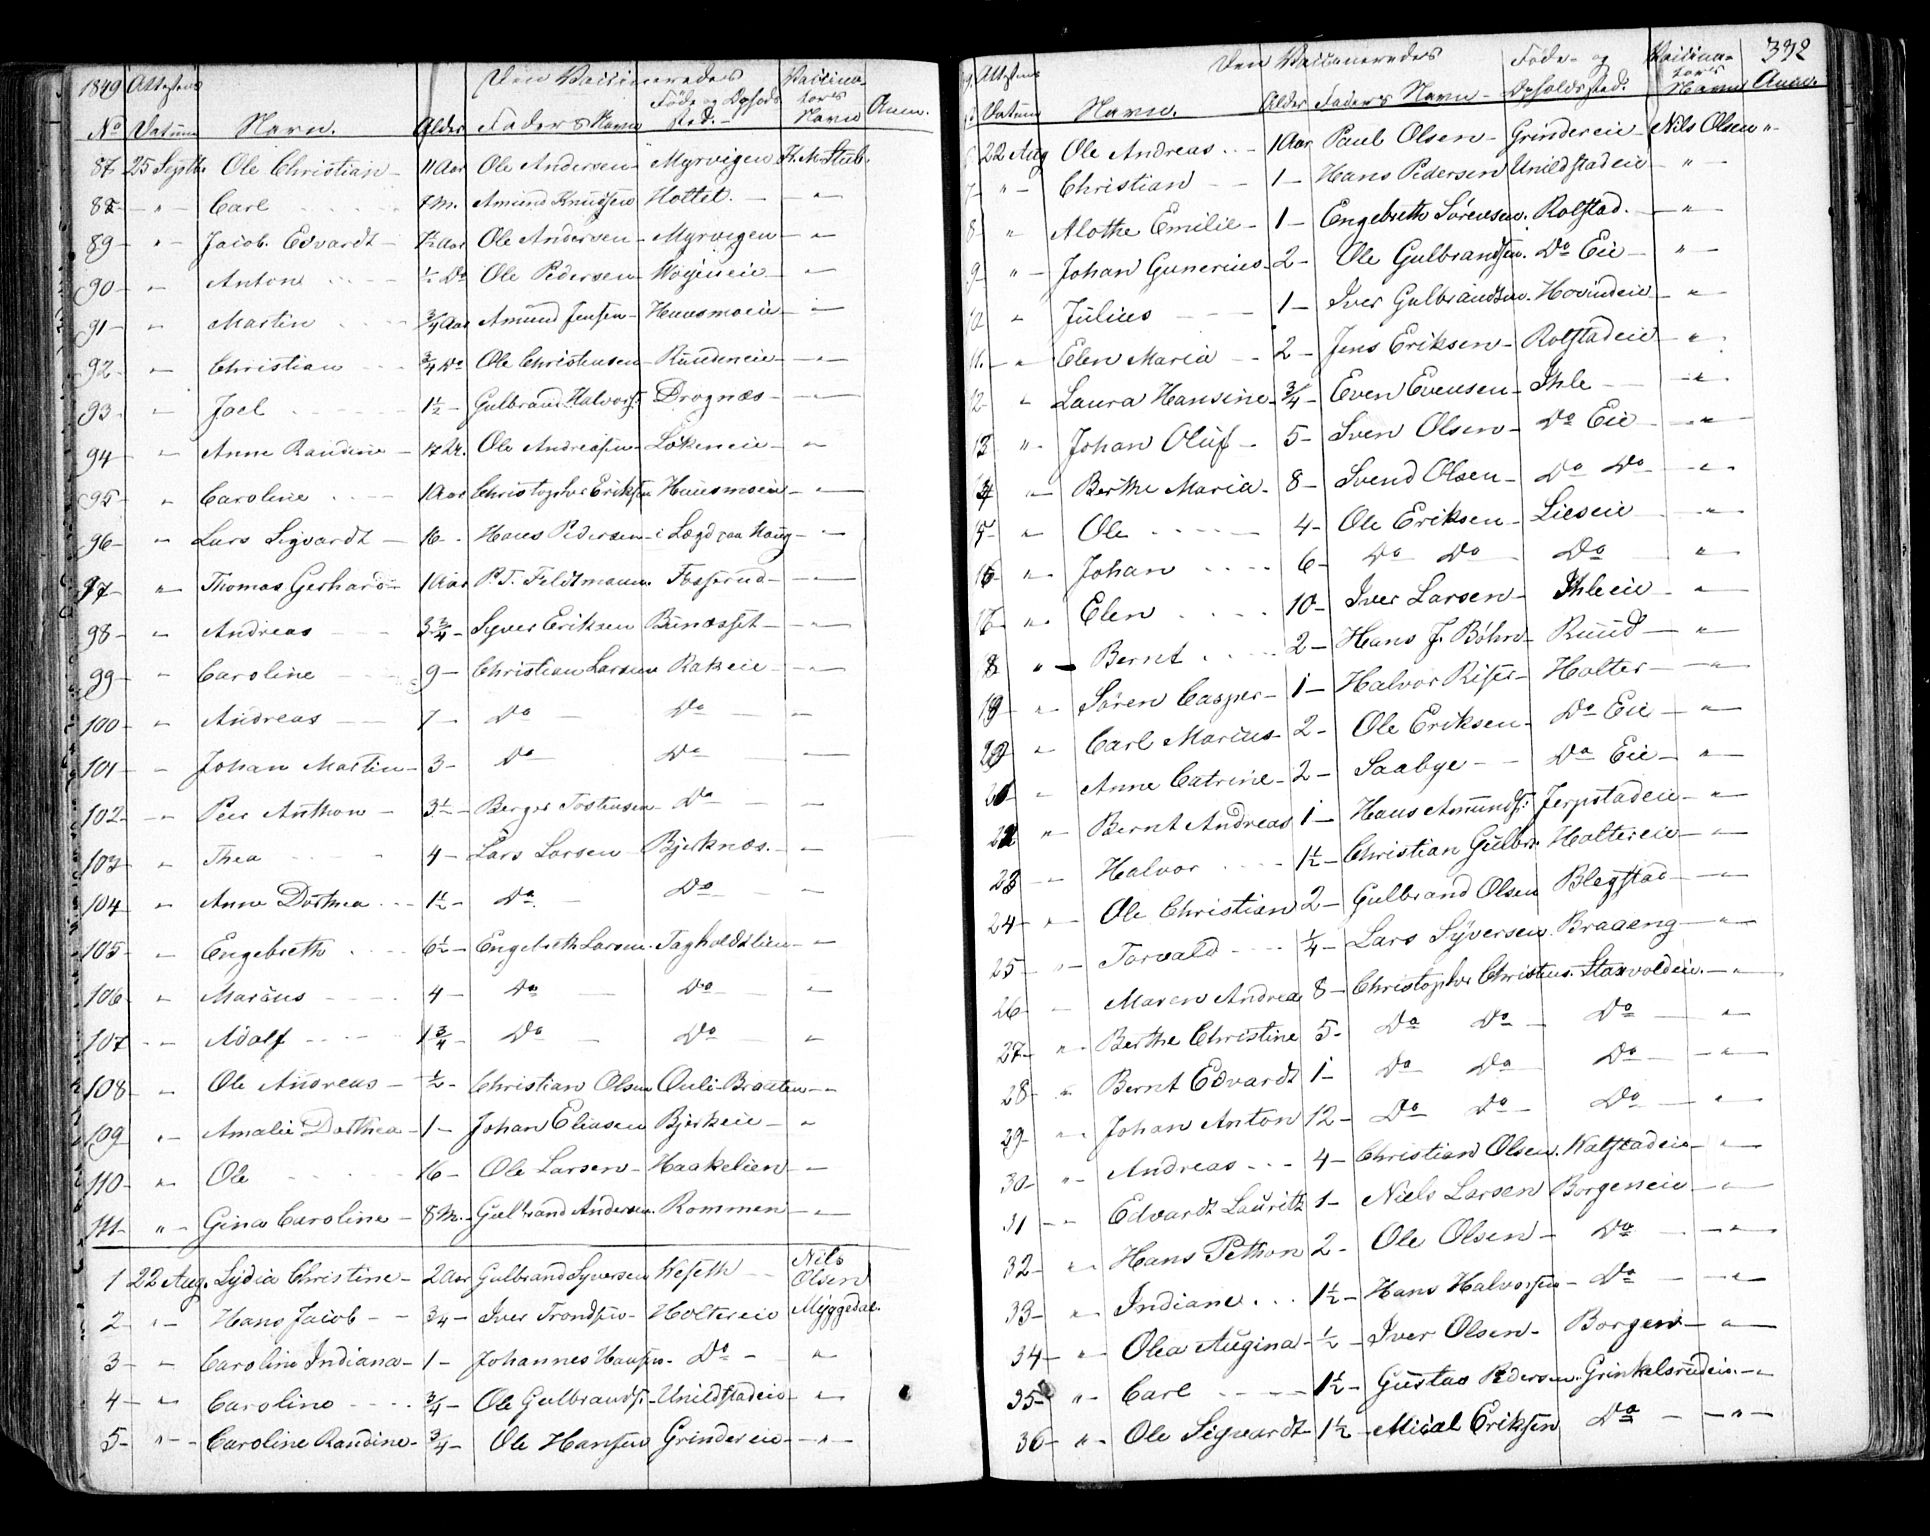 1849 Attestens Den Vaccineredes Vaccina-
Føde- og Opholds- tors
No Datum Navn. Alder Faders Navn sted.- Navn Anm.
87 25 Septbr. Ole Christian - 11 Aar Ole Andersen - Myrvigen H. M. Stub.
88 - " - Carl 7 M. Amund Knudsen Holtet. - "
89 - " - Jacob Edvardt - 1½ Aar Ole Andersen - Myrvigen - "
90 - " Anton ½ Do Ole Pedersen - Wojeneie - "
91 - " Martin ¾ Aar Amund Jensen - Huusmoeie - "
92 - " Christian ¾ Do Ole Christensen - Ruudeneie - "
93 - " Joel - 1½ - Gulbrand Halvors. Drognæs - "
94 - " Anne Randine - 17 Ur. Ole Andreasen - Løkeneie - "
95 - " Caroline 1 Aar Christopher Eriksen Huusmoeie - "
96 - " Lars Sigvardt - 16 - Hans Pedersen - i Lægd paa Haug - "
97 - " Thomas Gerhard - 1 Aar P. T. Feldtmann. Fosserud - "
98 - " Andreas 3¾ - Syver Eriksen Bunæsset - "
99 - " Caroline 9 - Christian Larsen Rakeie - "
100 - " Andreas 7 - Do Do - "
101 - " Johan Martin - 3 - Do Do - "
102 - " Peer Anthon - 3½ - Berger Tostensen - Do - "
103 - " Thea 4 - Lars Larsen Bjerknæs. - "
104 - " Anne Dorthea - 1½ - Do. Do - "
105 - " Engebreth 6½ - Engebreth Larsen - Tagholdtlien - "
106 - " Marius 4 - Do Do - "
107 - " Adolf 1¾ - Do Do - "
108 - " Ole Andreas - ½ - Christian Olsen Ouli-Braaten - "
109 - " Amalie Dorthea - 1 - Johan Eliasen Bjerkeie - "
110 - " Ole 16 - Ole Larsen - Haakelien - "
111 - " - Gina Caroline - 8 M. - Gulbrand Andersen. Rommen - "
1 22 Aug. Lydia Christine - 2 Aar Gulbrand Syversen Weseth - Nils Olsen
2 " - Hans Jacob - ¾ - Iver Trondsen - Holtereie Myggedal.
3 - " Caroline Indiana - 1 - Johannes Hansen - Do - "
4 - " Caroline ¾ - Ole Gulbrands. - Unildstadeie - "
5 - " - Caroline Randine - ¾ - Ole Hansen Grindereie - "
Attestens Den Vaccineredes Føde- og Vaccina- 392
tors
Datum Navn. Alder Faders Navn - Opholdssted: Navn Anm.
22 Aug Ole Andreas - 1 Aar Paul Olsen - Grindereie - Nils Olsen "
7 - " - Christian - 1 - Hans Pedersen Unildstadeie - "
8 - " Alothe Emilie - 1 - Engebreth Sørensen. Rolstad. - "
9 - " - Johan Gunerius - 2 - Ole Gulbrandsen. Do Eie - "
10 - " Julius 1 - Iver Gulbrandsen - Hovindeie - "
11. - " Elen Maria - 2 - Jens Eriksen - Rolstadeie - "
12 - " Laura Hansine - ¾ - Even Evensen - Ihle - "
13 " - Johan Oluf - 5 - Sven Olsen - Do Eie - "
14 - " Berthe Maria - 8 - Svend Olsen - Do Do - "
15 - " Ole 4 - Ole Eriksen - Lieseie - "
16 - " Johan 6 - Do Do Do "
17 - " Elen 10 - Iver Larsen - Ihleeie - "
18 - " Bernt 2 - Hans J. Bøhn - Ruud - "
19 - " Søren Casper - 1 - Halvor Riser - Holter - "
20 - " Carl Marius - 2 - Ole Eriksen - Do Eie - "
21 - " Anne Catrine - 2 - Saabye - Do Eie - "
22 " Bernt Andreas 1 - Hans Amunds. Jerpstadeie - "
23 - " Halvor 1½ - Christian Gulbr. Holtereie - "
24 - " Ole Christian 2 - Gulbrand Olsen Blegstad - "
25 - " Torvald ¼ - Lars Syversen. Braaeng - "
26 - " Maren Andrea 8 - Christopher Christens. Staxvoldeie. - "
27 - " Berthe Christine 5 - Do Do - Do - "
28 - " Bernt Edvardt 1 - Do Do Do - "
29 - " Johan Anton 12 - Do Do - Do - "
30 - " Andreas 4 - Christian Olsen. Wolstadeie - "
31 - " Edvardt Lauritz 1 - Niels Larsen Borgeneie - "
32 - " Hans Pethon 2 - Ole Olsen - Do - "
33 - " Indiane 1½ - Hans Halvorsen - Do - "
34 - " Olea Augina - ½ - Iver Olsen - Borgen - "
35 - " Carl 1½ - Gustav Pedersen. Grinkelsrudeie. - "
36 - " Ole Sigvardt - 1½ - Mical Eriksen Do - "